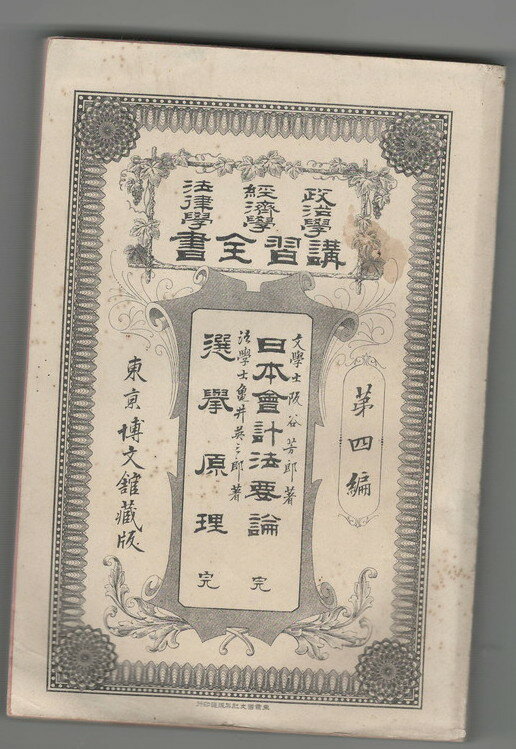 政治學
經濟學
法律學
講習全書
第四編
文學士阪谷芳郎著
日本會計法要論 完
法學士亀井英三郎著
選擧原理 完
東京博文舘藏版